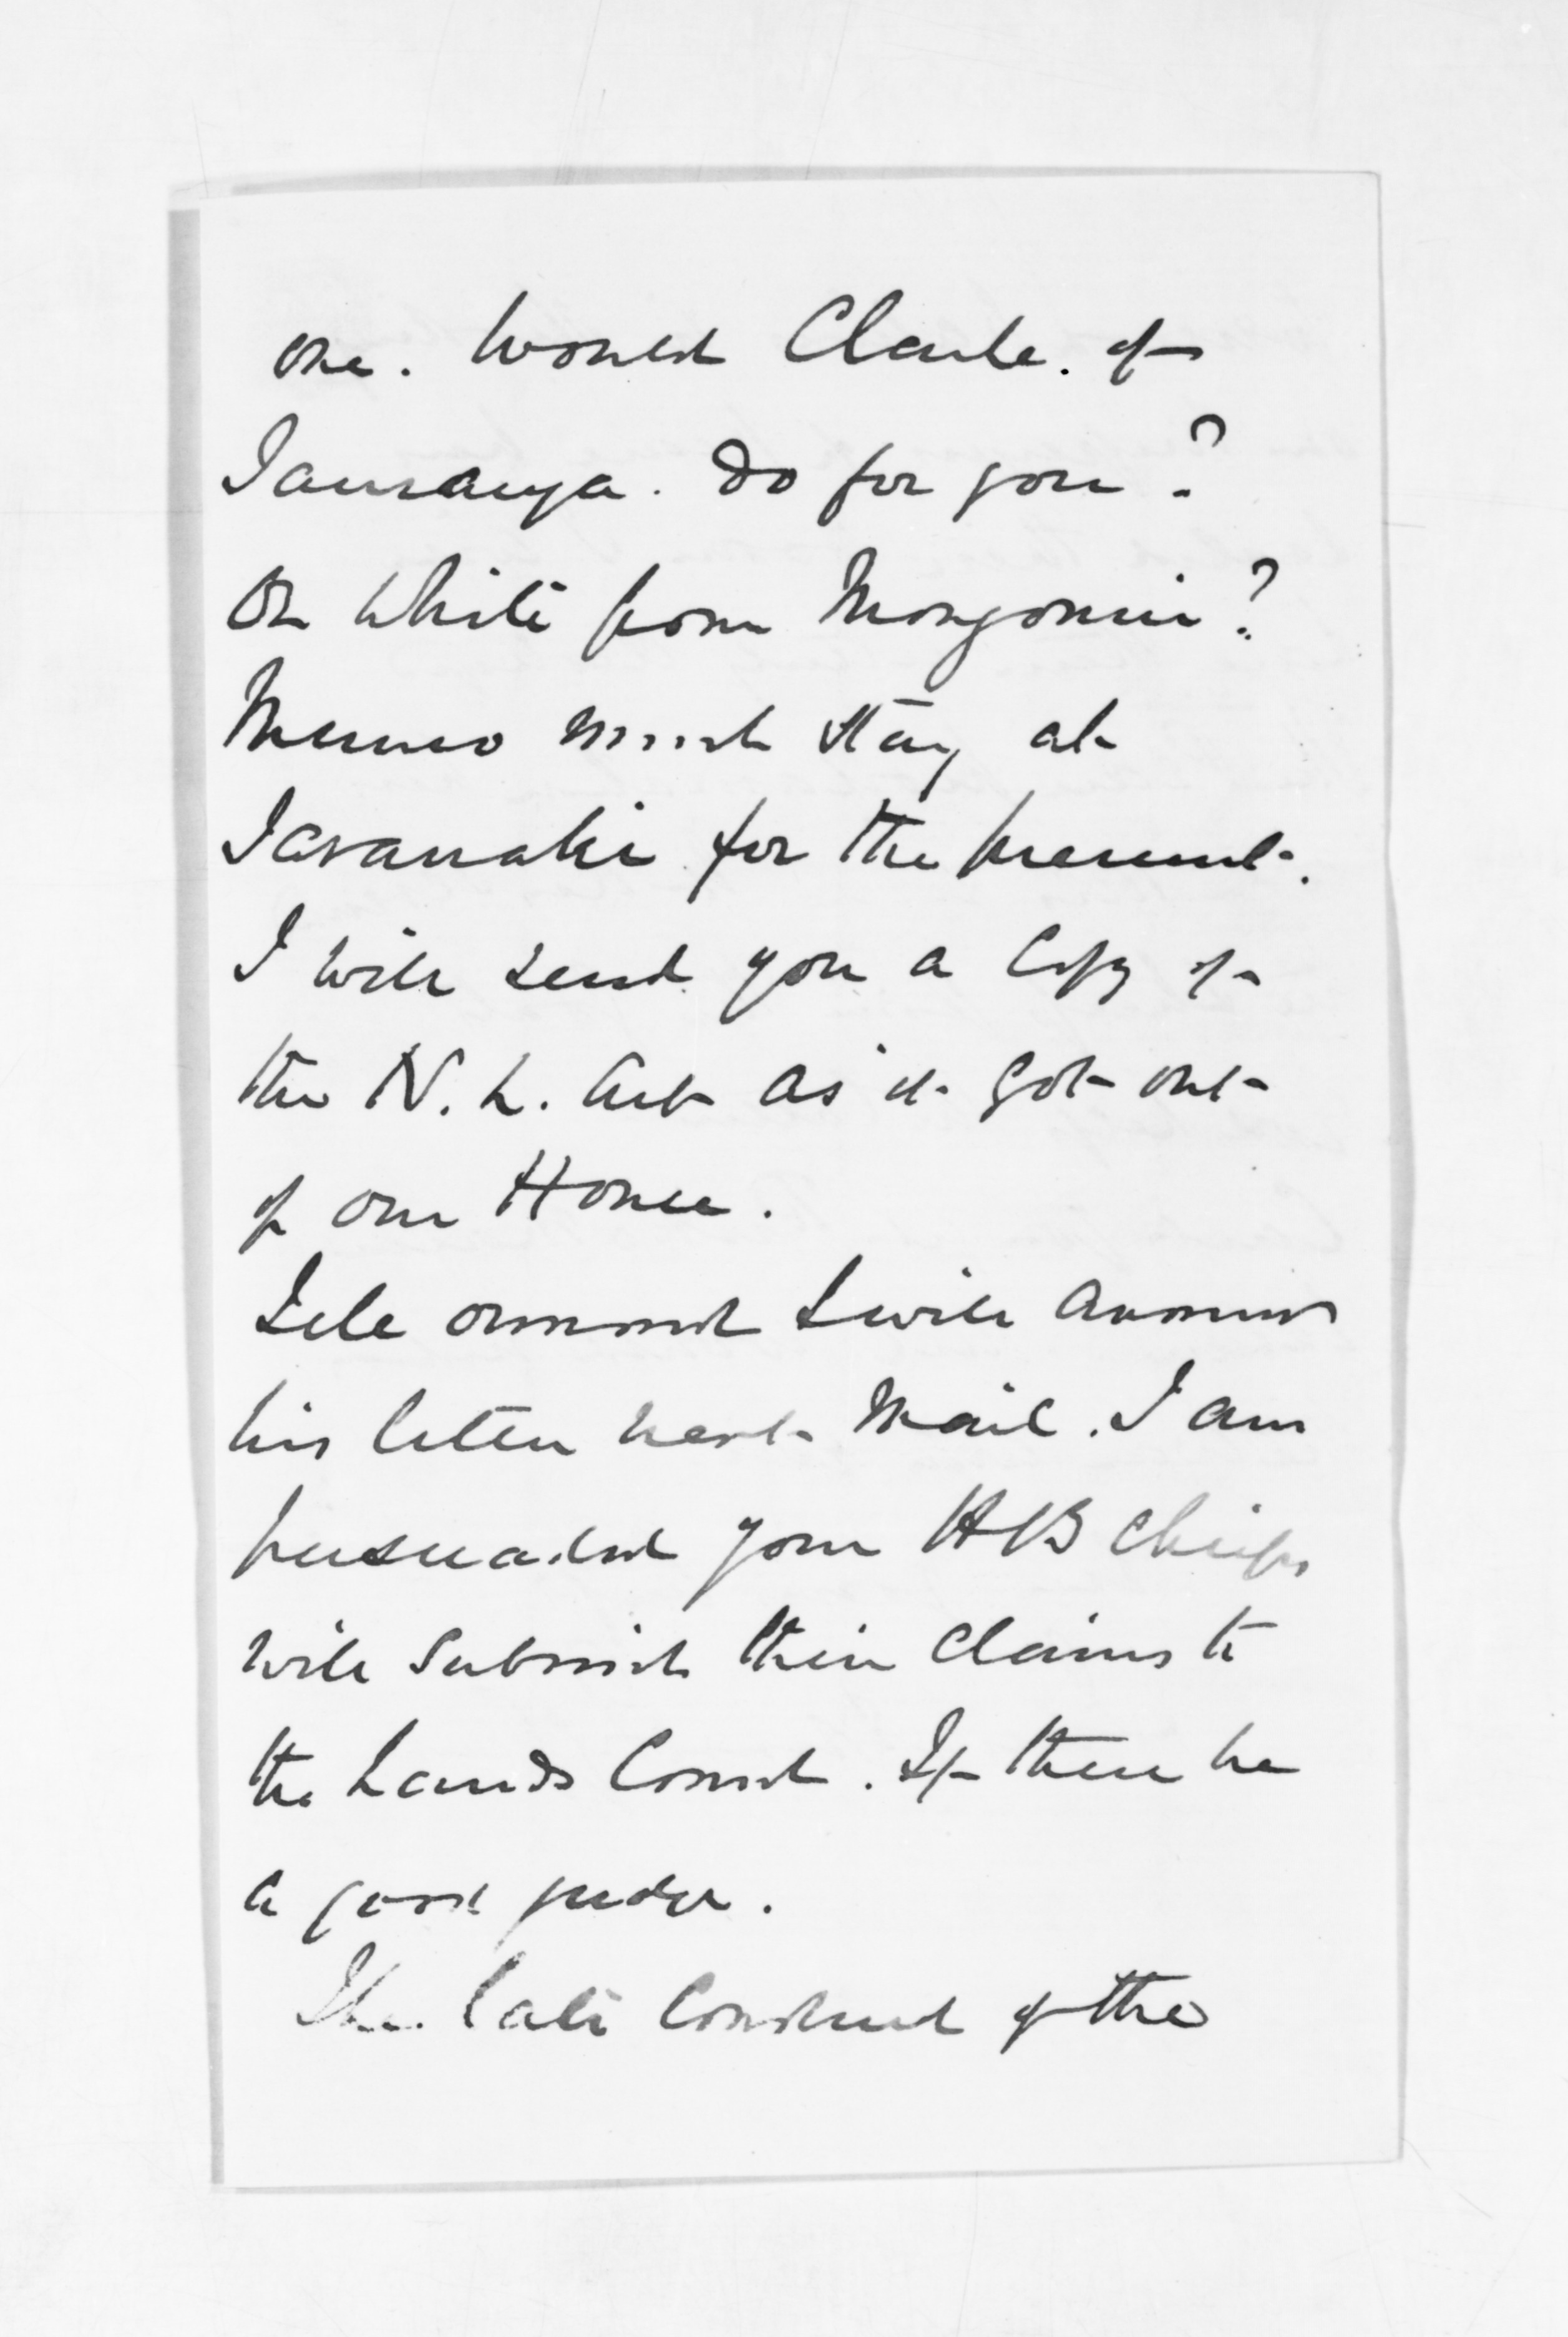 one. Would Clarke. of
Tauranga. do for you?
Or White from Mongonui?
Munro must stay at
Taranaki for the present.
I will send you a Copy of
the N. L. Act as it got out
of our House.
Tell Ormond I will answer
his letter next Mail. I am
persuaded your HB Chiefs
will Submit their Claims to
the Lands Court. If there be
a good judge.
The late Conduct of the